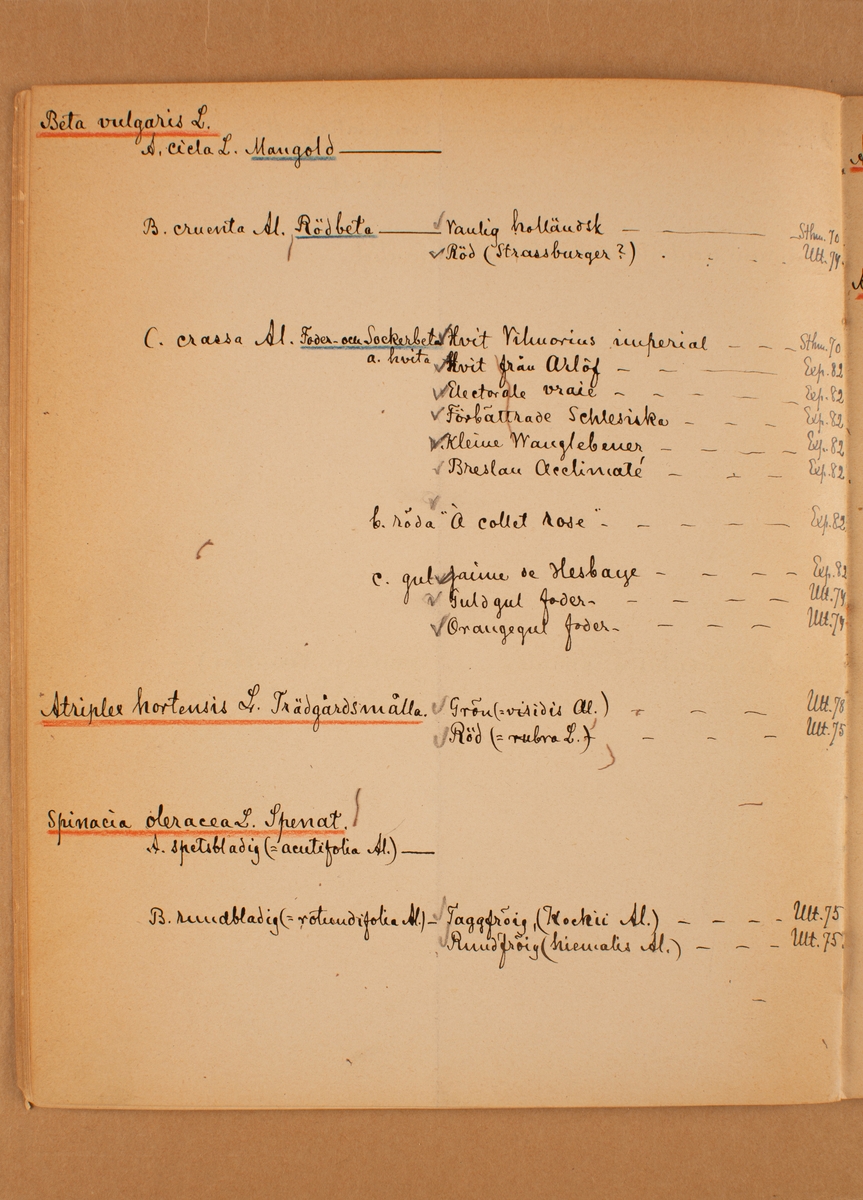 Beta vulgaris L.
A. cicla L. Mangold
B. cruenta Al. Rödbeta Vanlig holländsk Sthm. 70
Röd (Strassburger?) Utt. 74
C. crassa Al. Foder- och Sockerbeta Hvit Vilmorins imperial Sthm. 70
a. hvita Hvit från Arlöf Exp. 82
Electorale vraie Exp. 82
Förbättrade Schlesiska Exp. 82
Kleine Wanglebener Exp. 82
Breslau Acclimaté Exp. 82
b. röda "À collet rose" Exp. 82
c. gul Jaime de Hesbaye Exp. 82
Guldgul foder- Utt. 74
Orangegul foder- Utt. 74
Atriplex hortensis L. Trädgårdsmålla. Grön (=viridis Al.) Utt. 78
Röd (= rubra L.) Utt. 75
Spinacia oleracea L. Spenat.
A. spetsbladig (= acutifolia Al.)
B. rundbladig (= rotundifolia Al.) Taggfröig, (Kockii Al.) Utt. 75
Rundfröig (hiemalis Al.) Utt. 75.